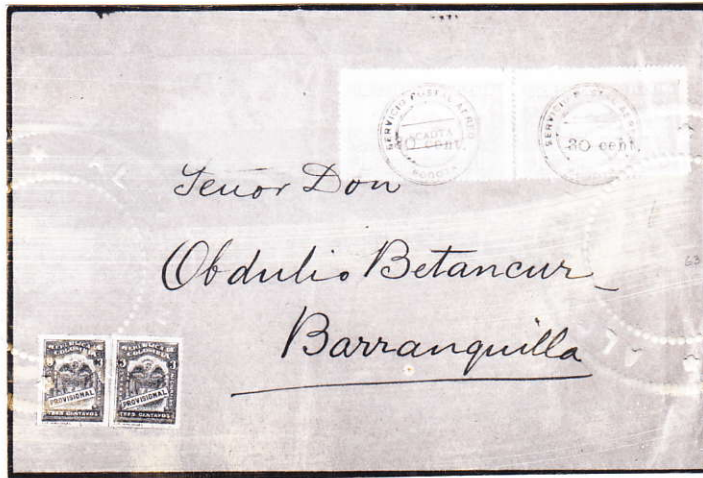 SERVICIO POSTAL AEREO
SCADTA
30 cent.
BOGOTA
SERVICIO POSTAL AEREO
30 cent.
Señor Don
Obdulio Betancur
Barranquilla
63
REPUBLICA DE
COLOMBIA
3 3
PROVISIONAL
TRES CENTAVOS
REPUBLICA DE
COLOMBIA
3 3
PROVISIONAL
TRES CENTAVOS